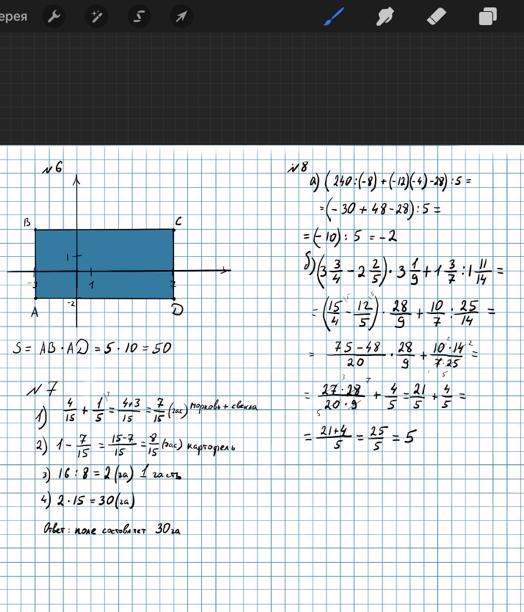 ерея
№6
B C
1
-3 1 7
-2
A D
S = AB · AD = 5 · 10 = 50
№7
1) 4/15 + 1/5 = 4+3/15 = 7/15 (час) морковь + свекла
2) 1 - 7/15 = 15-7/15 = 8/15 (час) картофель
3) 16 : 8 = 2 (га) 1 часть
4) 2 · 15 = 30 (га)
Ответ: поле составляет 30 га
№8
а) (240 : (-8) + (-12)(-4) -28) : 5 =
= (-30 + 48 - 28) : 5 =
= (-10) : 5 = -2
б) (3 3/4 - 2 2/5) · 3 1/9 + 1 3/7 : 1 11/14 =
= (15/4 - 12/5) · 28/9 + 10/7 : 25/14 =
= 75-48/20 · 28/9 + 10·14/7·25 =
= 27·28/20·9 + 4/5 = 21/5 + 4/5 =
= 21+4/5 = 25/5 = 5